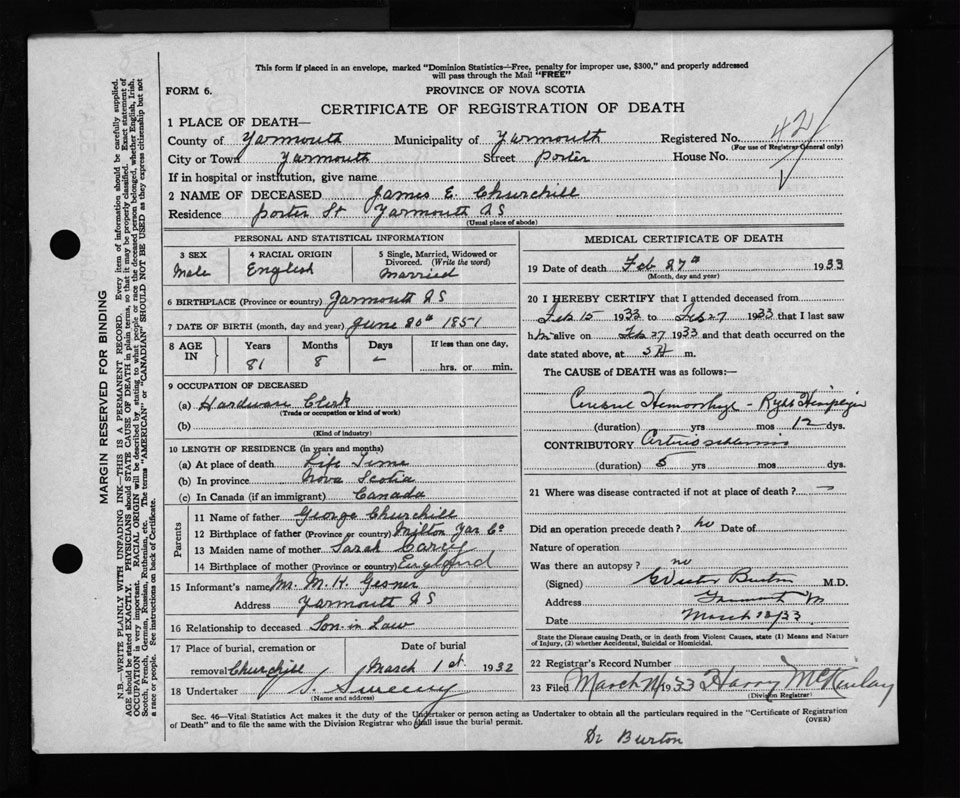 This form if placed in an envelope, marked "Dominion Statistics—Free, penalty for improper use, $300," and properly addressed
will pass through the Mail "FREE"
FORM 6. PROVINCE OF NOVA SCOTIA
CERTIFICATE OF REGISTRATION OF DEATH
1 PLACE OF DEATH—
County of Yarmouth Municipality of Yarmouth Registered No. 42
(For use of Registrar General only)
City or Town Yarmouth Street Porter House No.
If in hospital or institution, give name
2 NAME OF DECEASED James E. Churchill
Residence Porter St Yarmouth NS
(Usual place of abode)
PERSONAL AND STATISTICAL INFORMATION
3 SEX 4 RACIAL ORIGIN 5 Single, Married, Widowed or
Divorced. (Write the word)
Male English Married
6 BIRTHPLACE (Province or country) Yarmouth NS
7 DATE OF BIRTH (month, day and year) June 20th 1851
8 AGE IN Years Months Days If less than one day,
81 8 – hrs. or min.
9 OCCUPATION OF DECEASED
(a) Hardware Clerk
(Trade or occupation or kind of work)
(b)
(Kind of industry)
10 LENGTH OF RESIDENCE (in years and months)
(a) At place of death Life Time
(b) In province Nova Scotia
(c) In Canada (if an immigrant) Canada
Parents
11 Name of father George Churchill
12 Birthplace of father (Province or country) Milton Yar Co
13 Maiden name of mother Sarah Carey
14 Birthplace of mother (Province or country) England
15 Informant's name Mr. M. H. Gesner
Address Yarmouth NS
16 Relationship to deceased Son-in Law
17 Place of burial, cremation or Date of burial
removal March 1st 1932
18 Undertaker Sweeny
(Name and address)
MEDICAL CERTIFICATE OF DEATH
19 Date of death Feb 27th 1933
(Month, day and year)
20 I HEREBY CERTIFY that I attended deceased from
Feb 15 1933 to Feb 27 1933 that I last saw
him alive on Feb 27 1933 and that death occurred on the
date stated above, at m.
The CAUSE of DEATH was as follows:
Cerebral Hemorrhage - Right Hemiplegia
(duration) yrs mos 12 dys.
CONTRIBUTORY Arteriosclerosis
(duration) 5 yrs mos dys.
21 Where was disease contracted if not at place of death? –
Did an operation precede death? no Date of
Nature of operation
Was there an autopsy? no
(Signed) Burton M.D.
Address Yarmouth
Date March 33
State the Disease causing Death, or in death from Violent Causes, state (1) Means and Nature
of Injury, (2) whether Accidental, Suicidal or Homicidal.
22 Registrar's Record Number
23 Filed March 1933 Harry McKinlay
(Division Registrar)
Sec. 46—Vital Statistics Act makes it the duty of the Undertaker or person acting as Undertaker to obtain all the particulars required in the "Certificate of Registration
of Death" and to file the same with the Division Registrar who shall issue the burial permit. (OVER)
Dr Burton
MARGIN RESERVED FOR BINDING
N.B.—WRITE PLAINLY WITH UNFADING INK—THIS IS A PERMANENT RECORD. Every item of information should be carefully supplied.
AGE should be stated EXACTLY. PHYSICIANS should STATE CAUSE OF DEATH in plain terms, so that it may be properly classified. Exact statement of
OCCUPATION is very important. RACIAL ORIGIN will be described by stating to what people or race the deceased person belonged, whether English, Irish,
Scotch, French, German, Russian, Ruthenian, etc. The terms "AMERICAN" or "CANADIAN" SHOULD NOT BE USED as they express citizenship but not
a race or people. See instructions on back of Certificate.